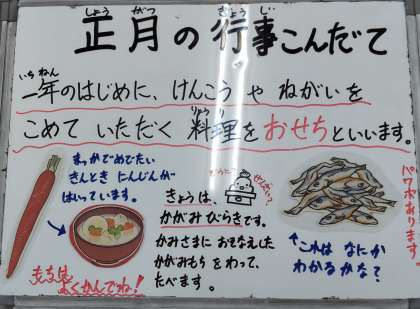 正月の行事こんだて
しょう がつ ぎょう じ
一年のはじめに、けんこう や ねがいを
いちねん
こめて いただく 料理を おせち といいます。
りょうり
まっかで めでたい
きんとき にんじんが
はいっています。
きょうは、
かがみびらきです。
かみさまに おそなえした
かがみもちを わって、
たべます。
↑これは なにか
わかるかな？
パワポあります
もちは
よくかんでね！